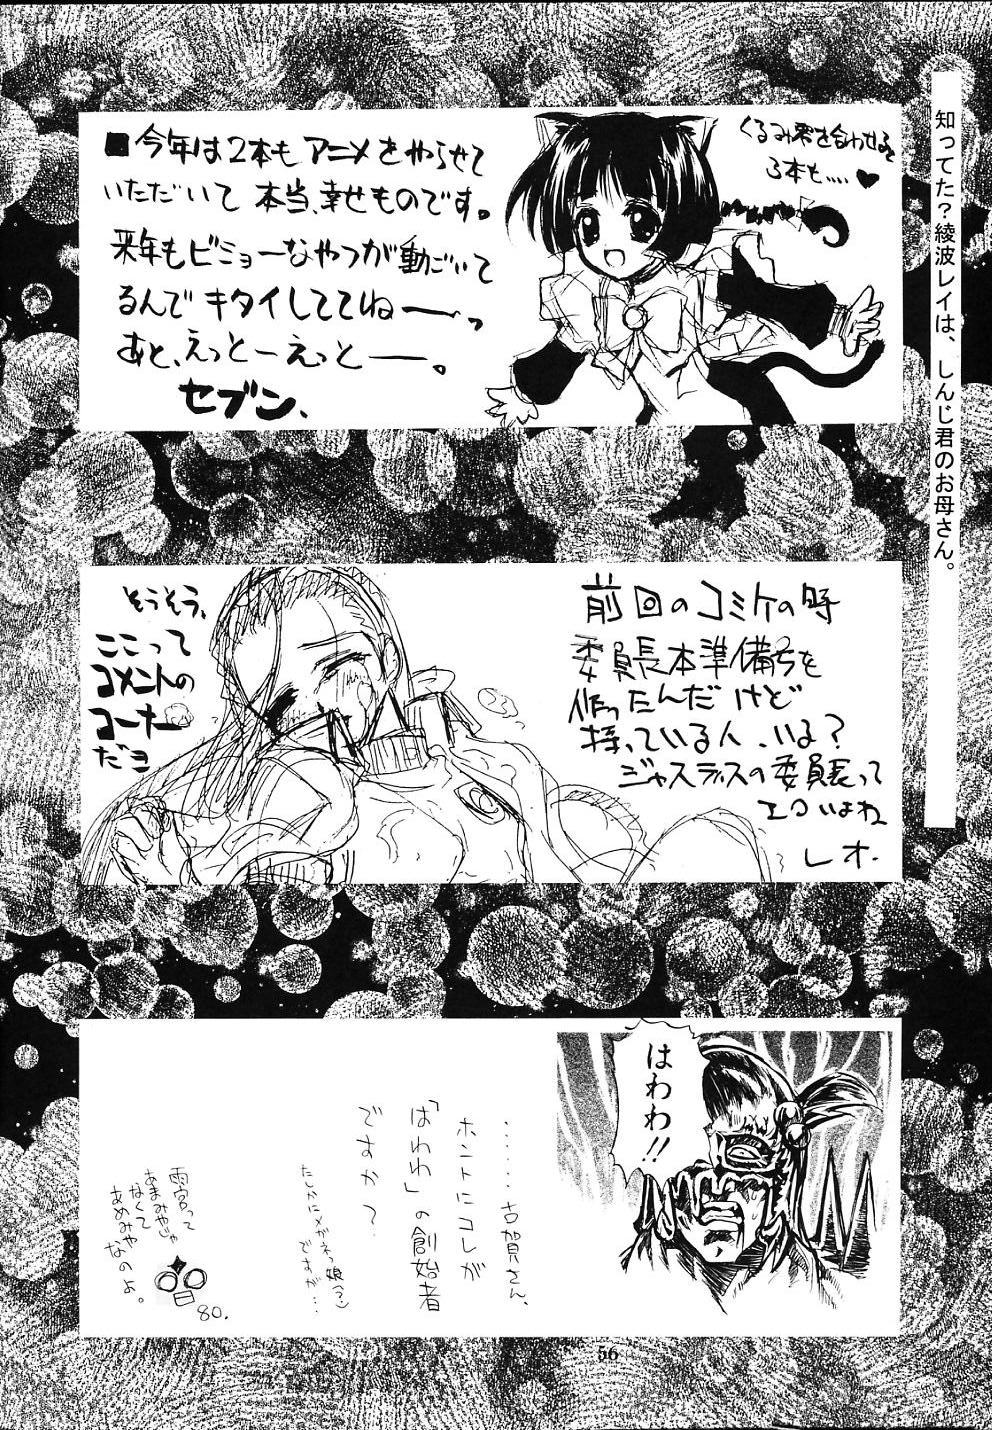 知ってた？綾波レイは、しんじ君のお母さん。
■今年は2本もアニメをやらせて
いただいて本当、幸せものです。
来年もビミョーなやつが動ごいて
るんでキタイしててねーっ
あと、えっとーえっとー。
セブン、
3本も‥‥♥
前回のコミケの時
委員長本準備号を
作ったんだけど
持っている人、いる？
ジャスティスの委員長って
エロいよね
レオ.
そうそう、
ここって
コメントの
コーナー
だヨ
はわわ!!
‥‥‥古賀さん、
ホントにコレが
「はわわ」の創始者
ですか？
たしかにメガネっ娘(?)
ですが…
雨宮って
あまみやじゃ
なくて
あめみや
なのよ。
80.
56